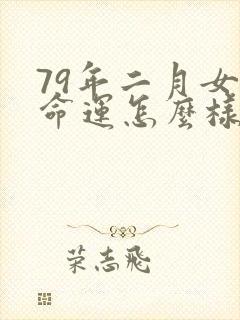 79年二月女
命運怎麼樣
荣志飛